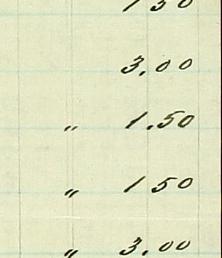 1 50
3.00
" 1.50
" 1 50
" 3.00